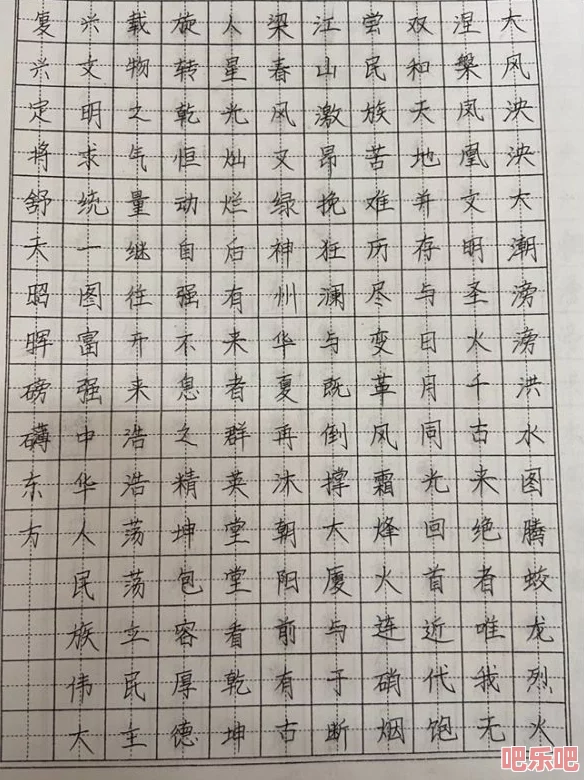 大风泱泱大潮滂滂洪水图腾蛟龙烈火
涅槃凤凰文明圣火千古来绝者唯我无
双和天地并存与日月同光回首近代饱
尝民族苦难历尽变革风霜烽火连硝烟
江山激昂挽狂澜与既倒撑大厦与于断
梁春风又绿神州华夏再沐朝阳前有古
人星光灿烂后有来者群英堂堂看乾坤
旋转乾恒动自强不息之精坤包容厚德
载物之气量继往开来浩浩荡荡立民主
兴文明求统一图富强中华人民族伟大
复兴定将舒天昭晖磅礴东方
吧乐吧